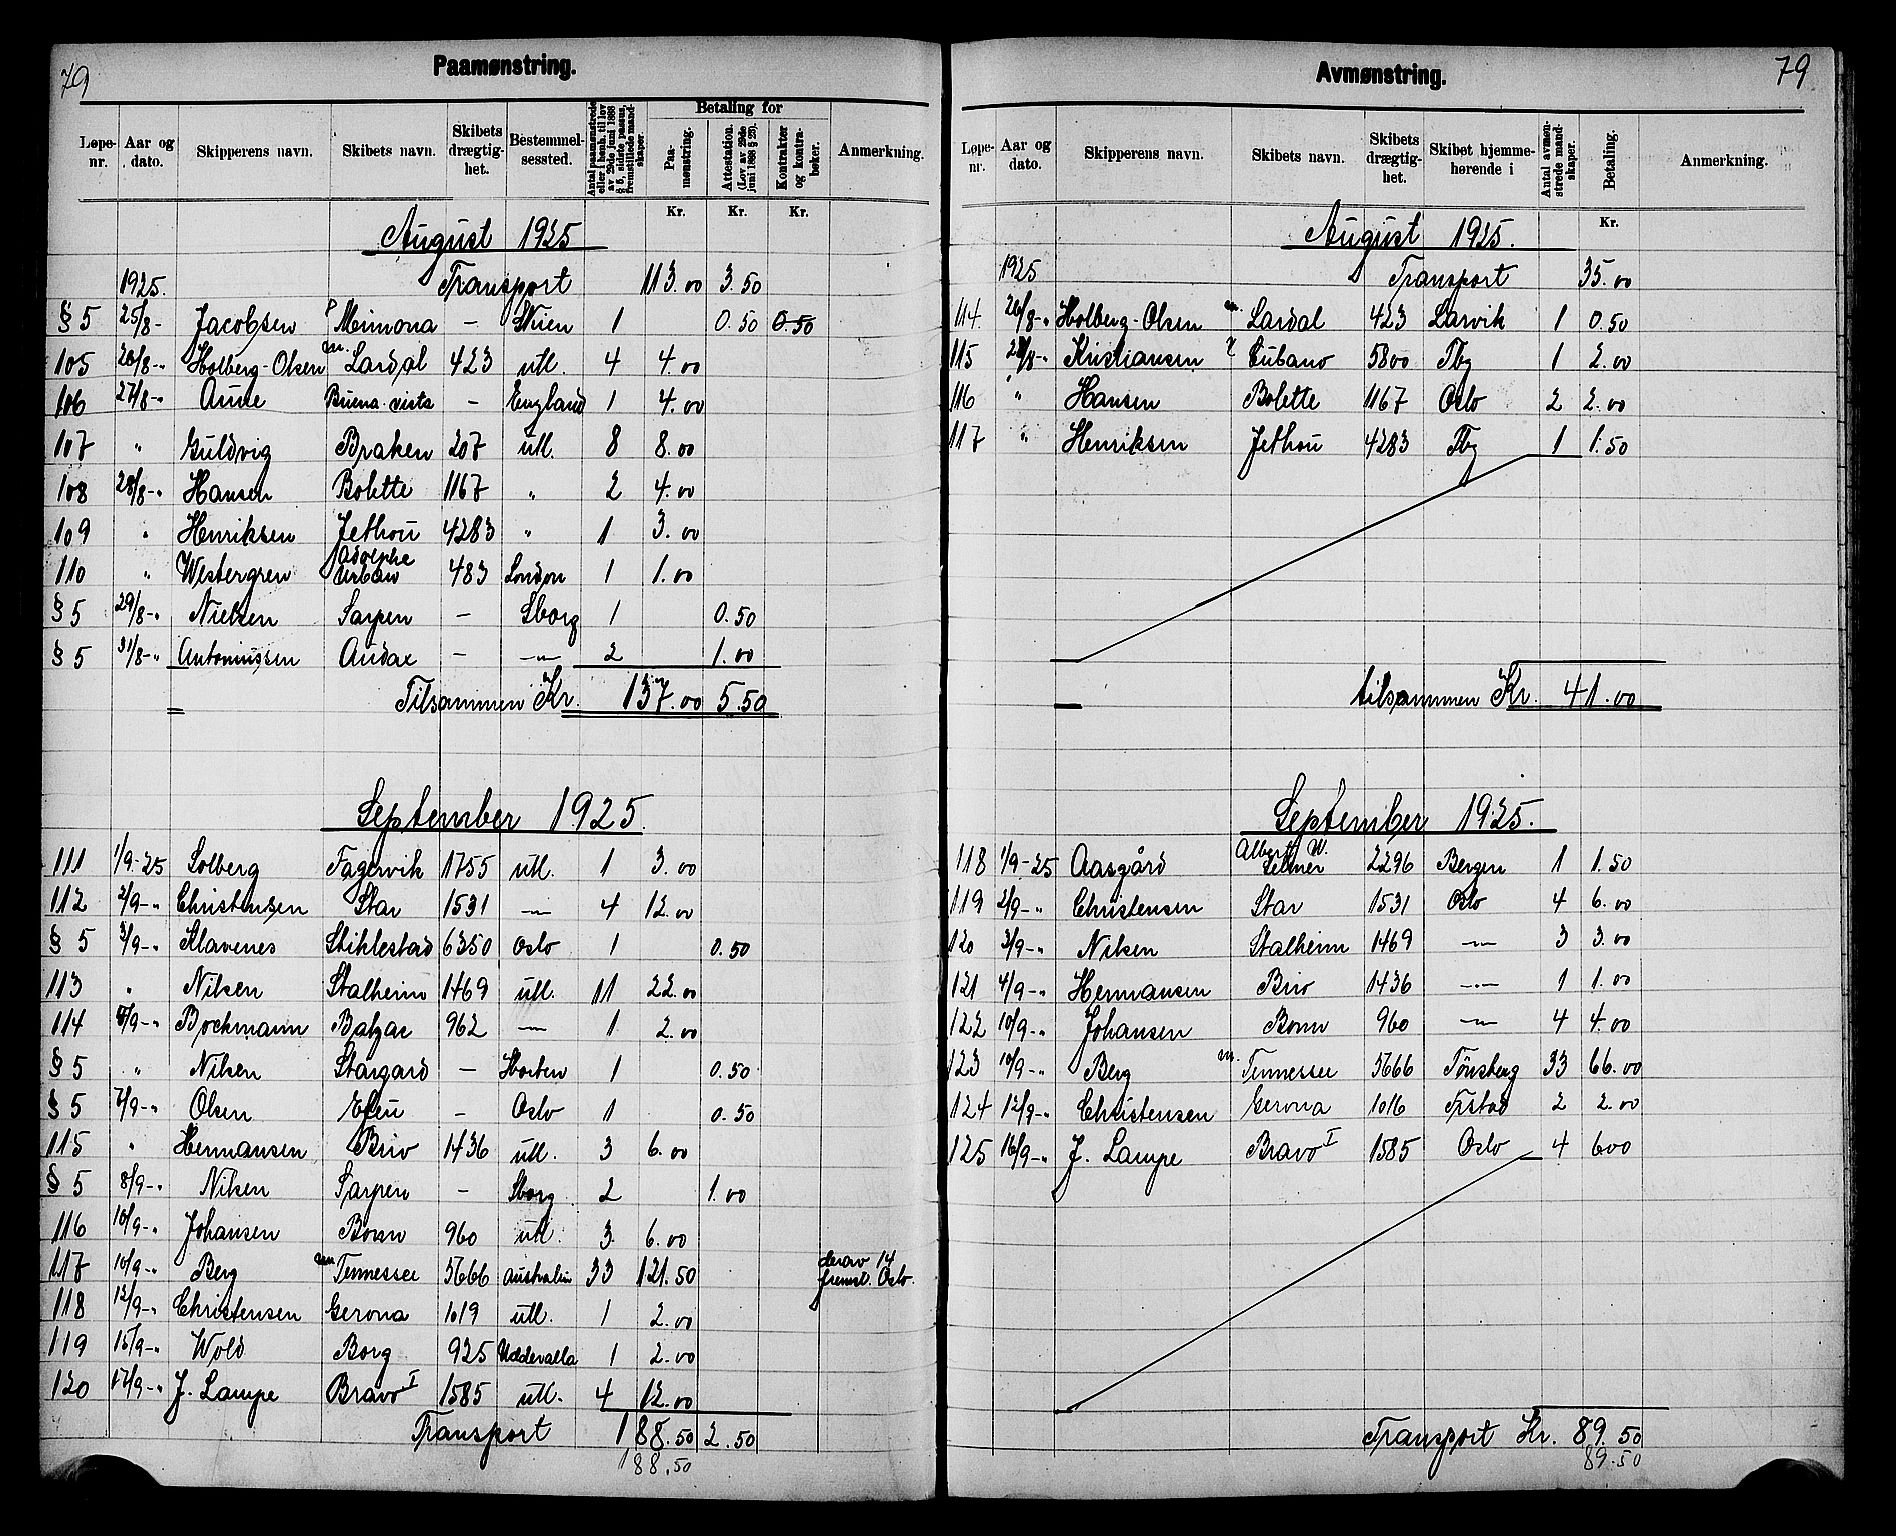 79
Paamønstring.
Løpe-nr. Aar og dato. Skipperens navn. Skibets navn. Skibets drægtig-het. Bestemmel-sessted. Antal paamønstrede eller i henh. til lov av 29de juni 1888 § 5, sidste passus, fremstillede mand-skaper. Betaling for Paa-mønstring. Attestation. (Lov av 29de juni 1888 § 23). Kontrakter og kontra-bøker. Anmerkning.
Kr. Kr. Kr.
August 1925
1925. Transport 113.00 3.50
§ 5 25/8 - Jacobsen Mimona — Skien 1 0.50 0.50
105 26/8 -" Holberg-Olsen m. Lardal 423 utl. 4 4.00
106 27/8 -" Aune Buena vista — England 1 4.00
107 " Guldvig Braken 207 utl. 8 8.00
108 28/8 -" Hansen Bolette 1167 " 2 4.00
109 " Henriksen Jethou 4283 " 1 3.00
110 " Westergren Adolphe Urban 483 London 1 1.00
§ 5 29/8 -" Nielsen Sarpen — Sborg 1 0.50
§ 5 31/8 -" Antoniussen Audax — —"— 2 1.00
Tilsammen Kr. 137.00 5.50
September 1925.
111 1/9-25 Solberg Fagervik 1755 utl. 1 3.00
112 2/9 -" Christensen Star 1531 —"— 4 12.00
§ 5 3/9 -" Klavenes Stiklestad 6350 Oslo 1 0.50
113 " Nilsen Stalheim 1469 utl. 11 22.00
114 /9 -" Bockmann Balzac 962 —"— 1 2.00
§ 5 " Nilsen Stargard — Horten 1 0.50
§ 5 7/9 -" Olsen — Oslo 1 0.50
115 " Hermansen Brio 1436 utl. 3 6.00
§ 5 8/9 -" Nilsen Sarpen — Sborg 2 1.00
116 10/9 -" Johansen Bonn 960 utl. 3 6.00
117 10/9 -" Berg m Tennessee 5666 Australien 33 121.50 derav 14 fremst. Oslo.
118 12/9 -" Christensen Gerona 1019 utl. 1 2.00
119 15/9 -" Wold Borg 925 Uddevalla 1 2.00
120 17/9 -" J. Lampe Bravo I 1585 utl. 4 12.00
Transport 188.50 2.50
188.50
79
Avmønstring.
Løpe-nr. Aar og dato. Skipperens navn. Skibets navn. Skibets drægtig-het. Skibet hjemme-hørende i Antal avmøn-strede mand-skaper. Betaling. Anmerkning.
Kr.
August 1925.
1925 Transport 35.00
114. 26/8 -" Holberg-Olsen m. Lardal 423 Larvik 1 0.50
115 28/8 -" Kristiansen Cubano 5800 Tbg 1 2.00
116 " Hansen Bolette 1167 Oslo 2 2.00
117 " Henriksen Jethou 4283 Tbg 1 1.50
tilsammen Kr. 41.00
September 1925.
118 1/9-25 Aasgård Albert W. Selmer 2296 Bergen 1 1.50
119 2/9 -" Christensen Star 1531 Oslo 4 6.00
120 3/9 -" Nilsen Stalheim 1469 —"— 3 3.00
121 4/9 -" Hermansen Brio 1436 —"— 1 1.00
122 10/9 -" Johansen Bonn 960 —"— 4 4.00
123 10/9 -" Berg m. Tennessee 5666 Tønsberg 33 66.00
124 12/9 -" Christensen Gerona 1016 Frstad 2 2.00
125 16/9 -" J. Lampe Bravo I 1585 Oslo 4 600
Transport Kr. 89.50
89.50